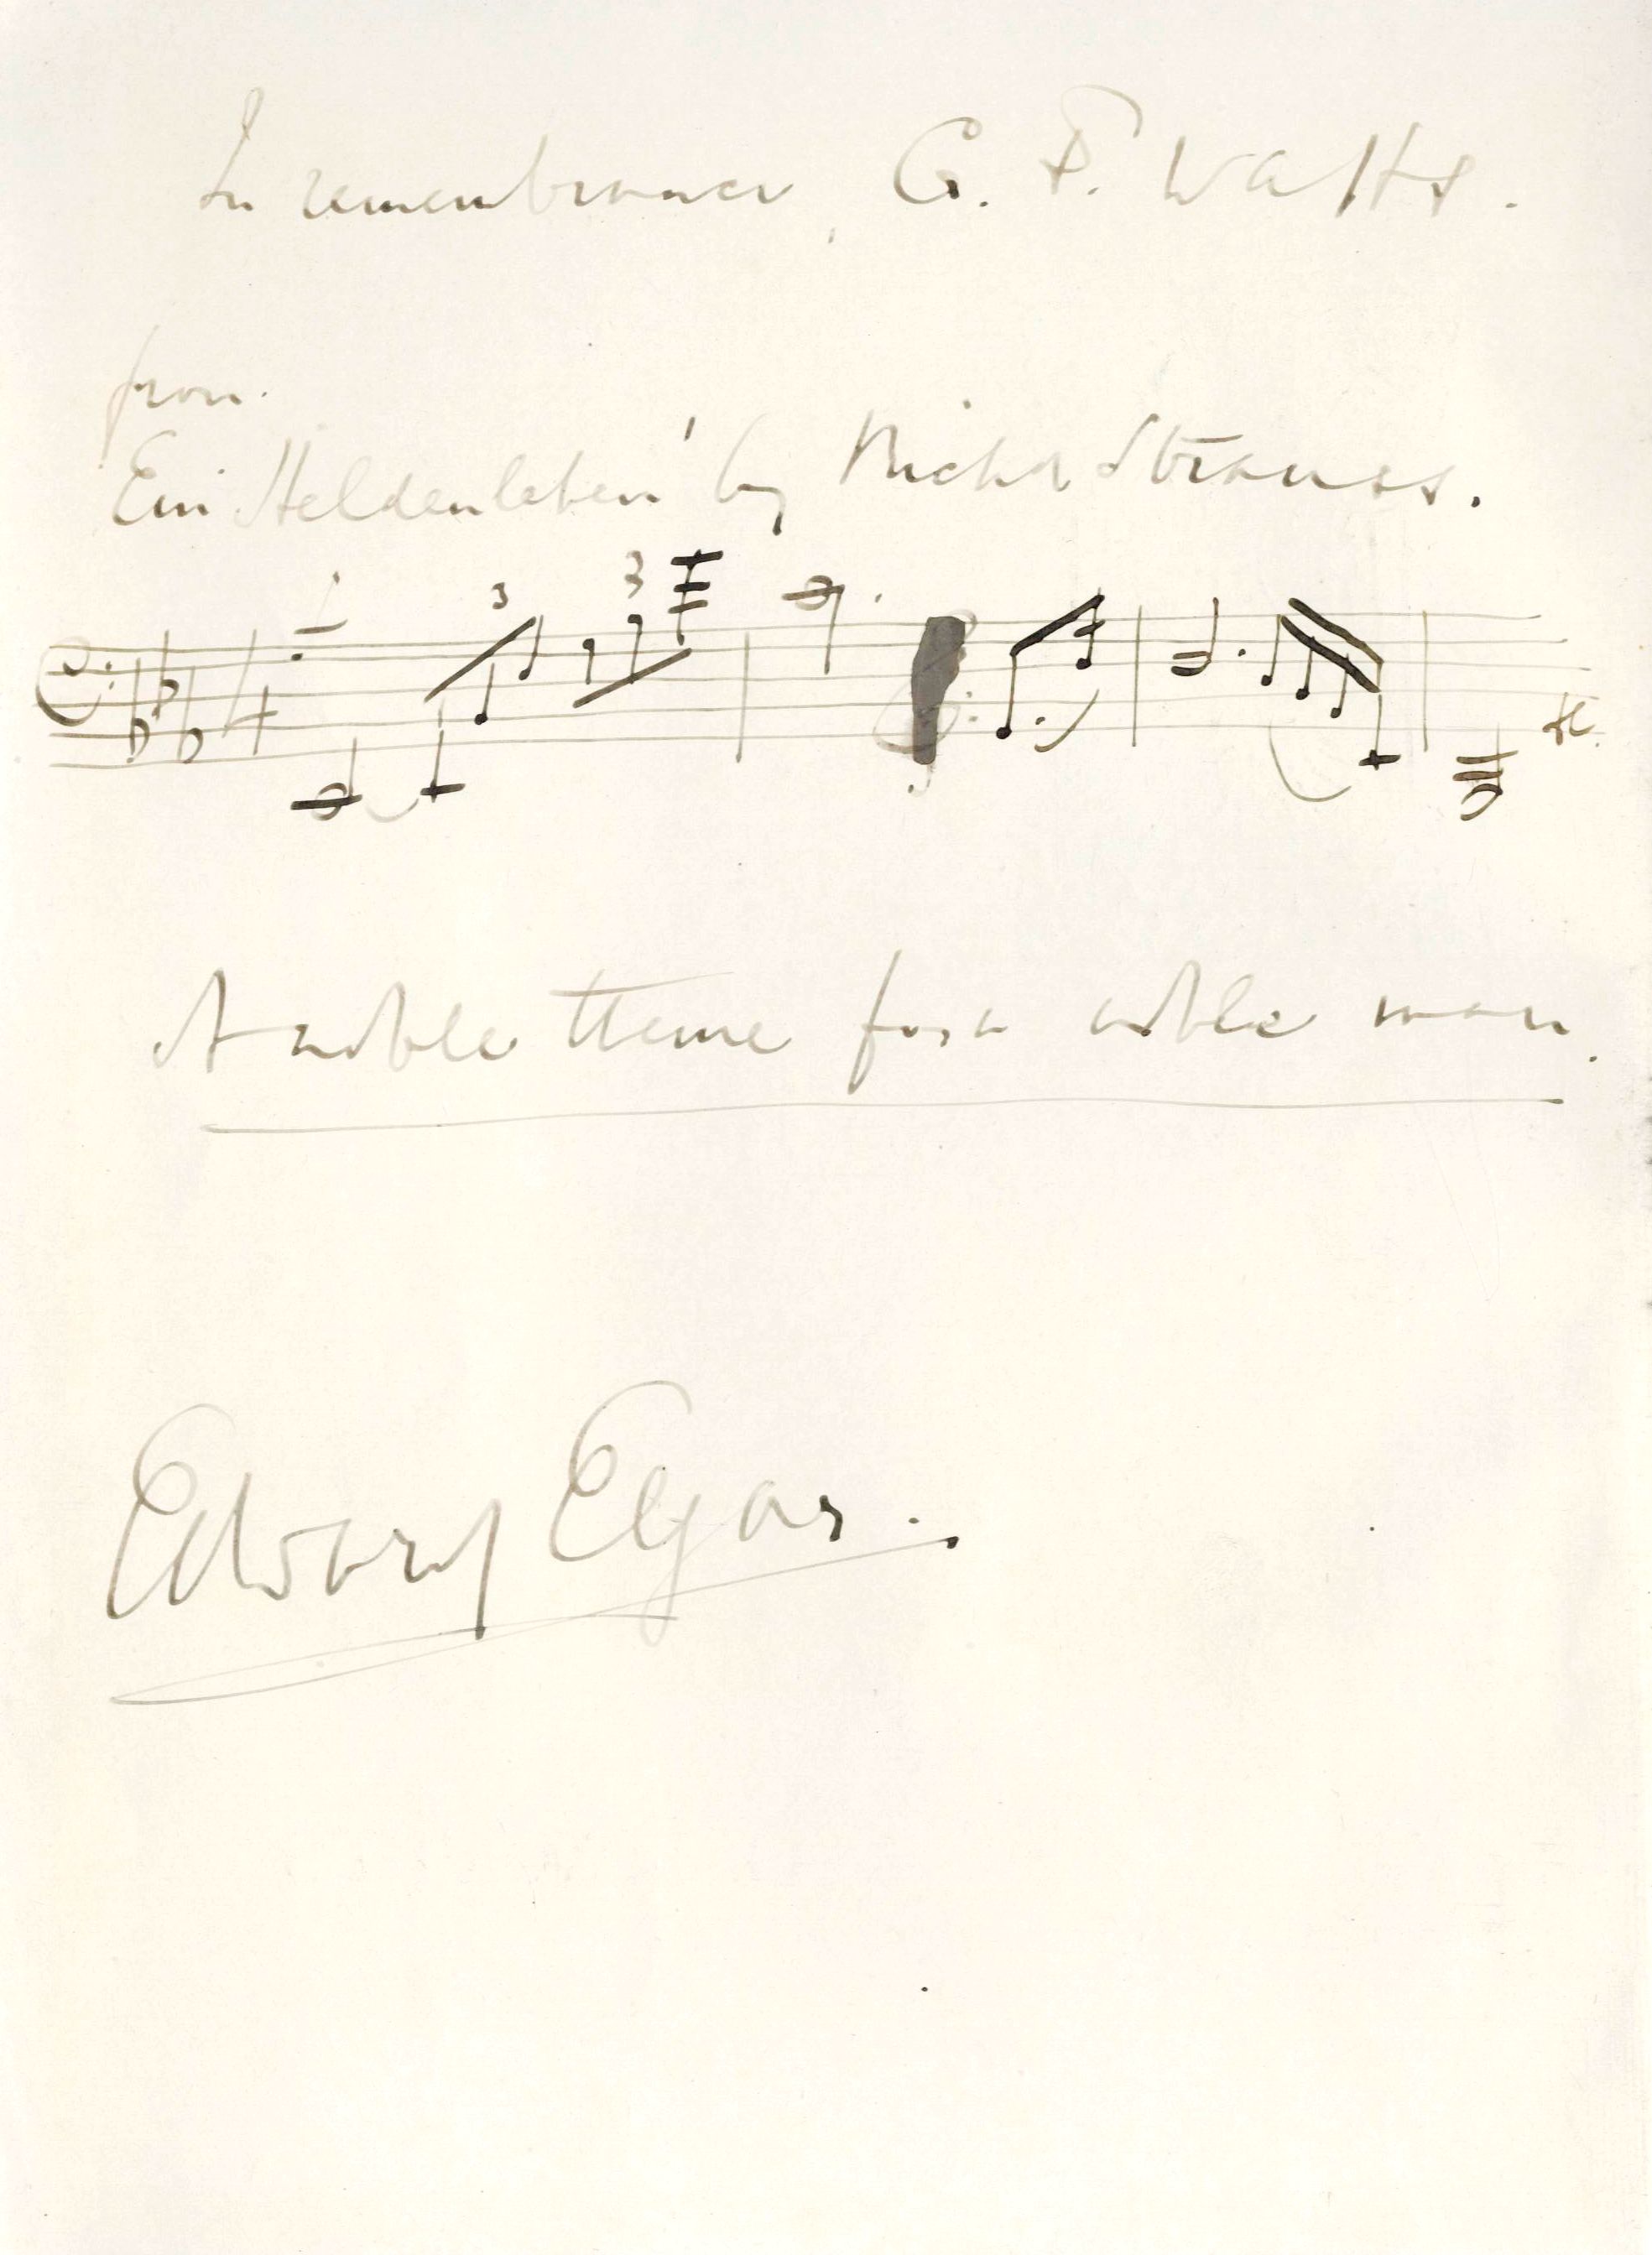 In remembrance, G. F. Watts.
from
Ein Heldenleben' by Richd Strauss.
3 3
A noble theme for a noble man.
Edward Elgar.